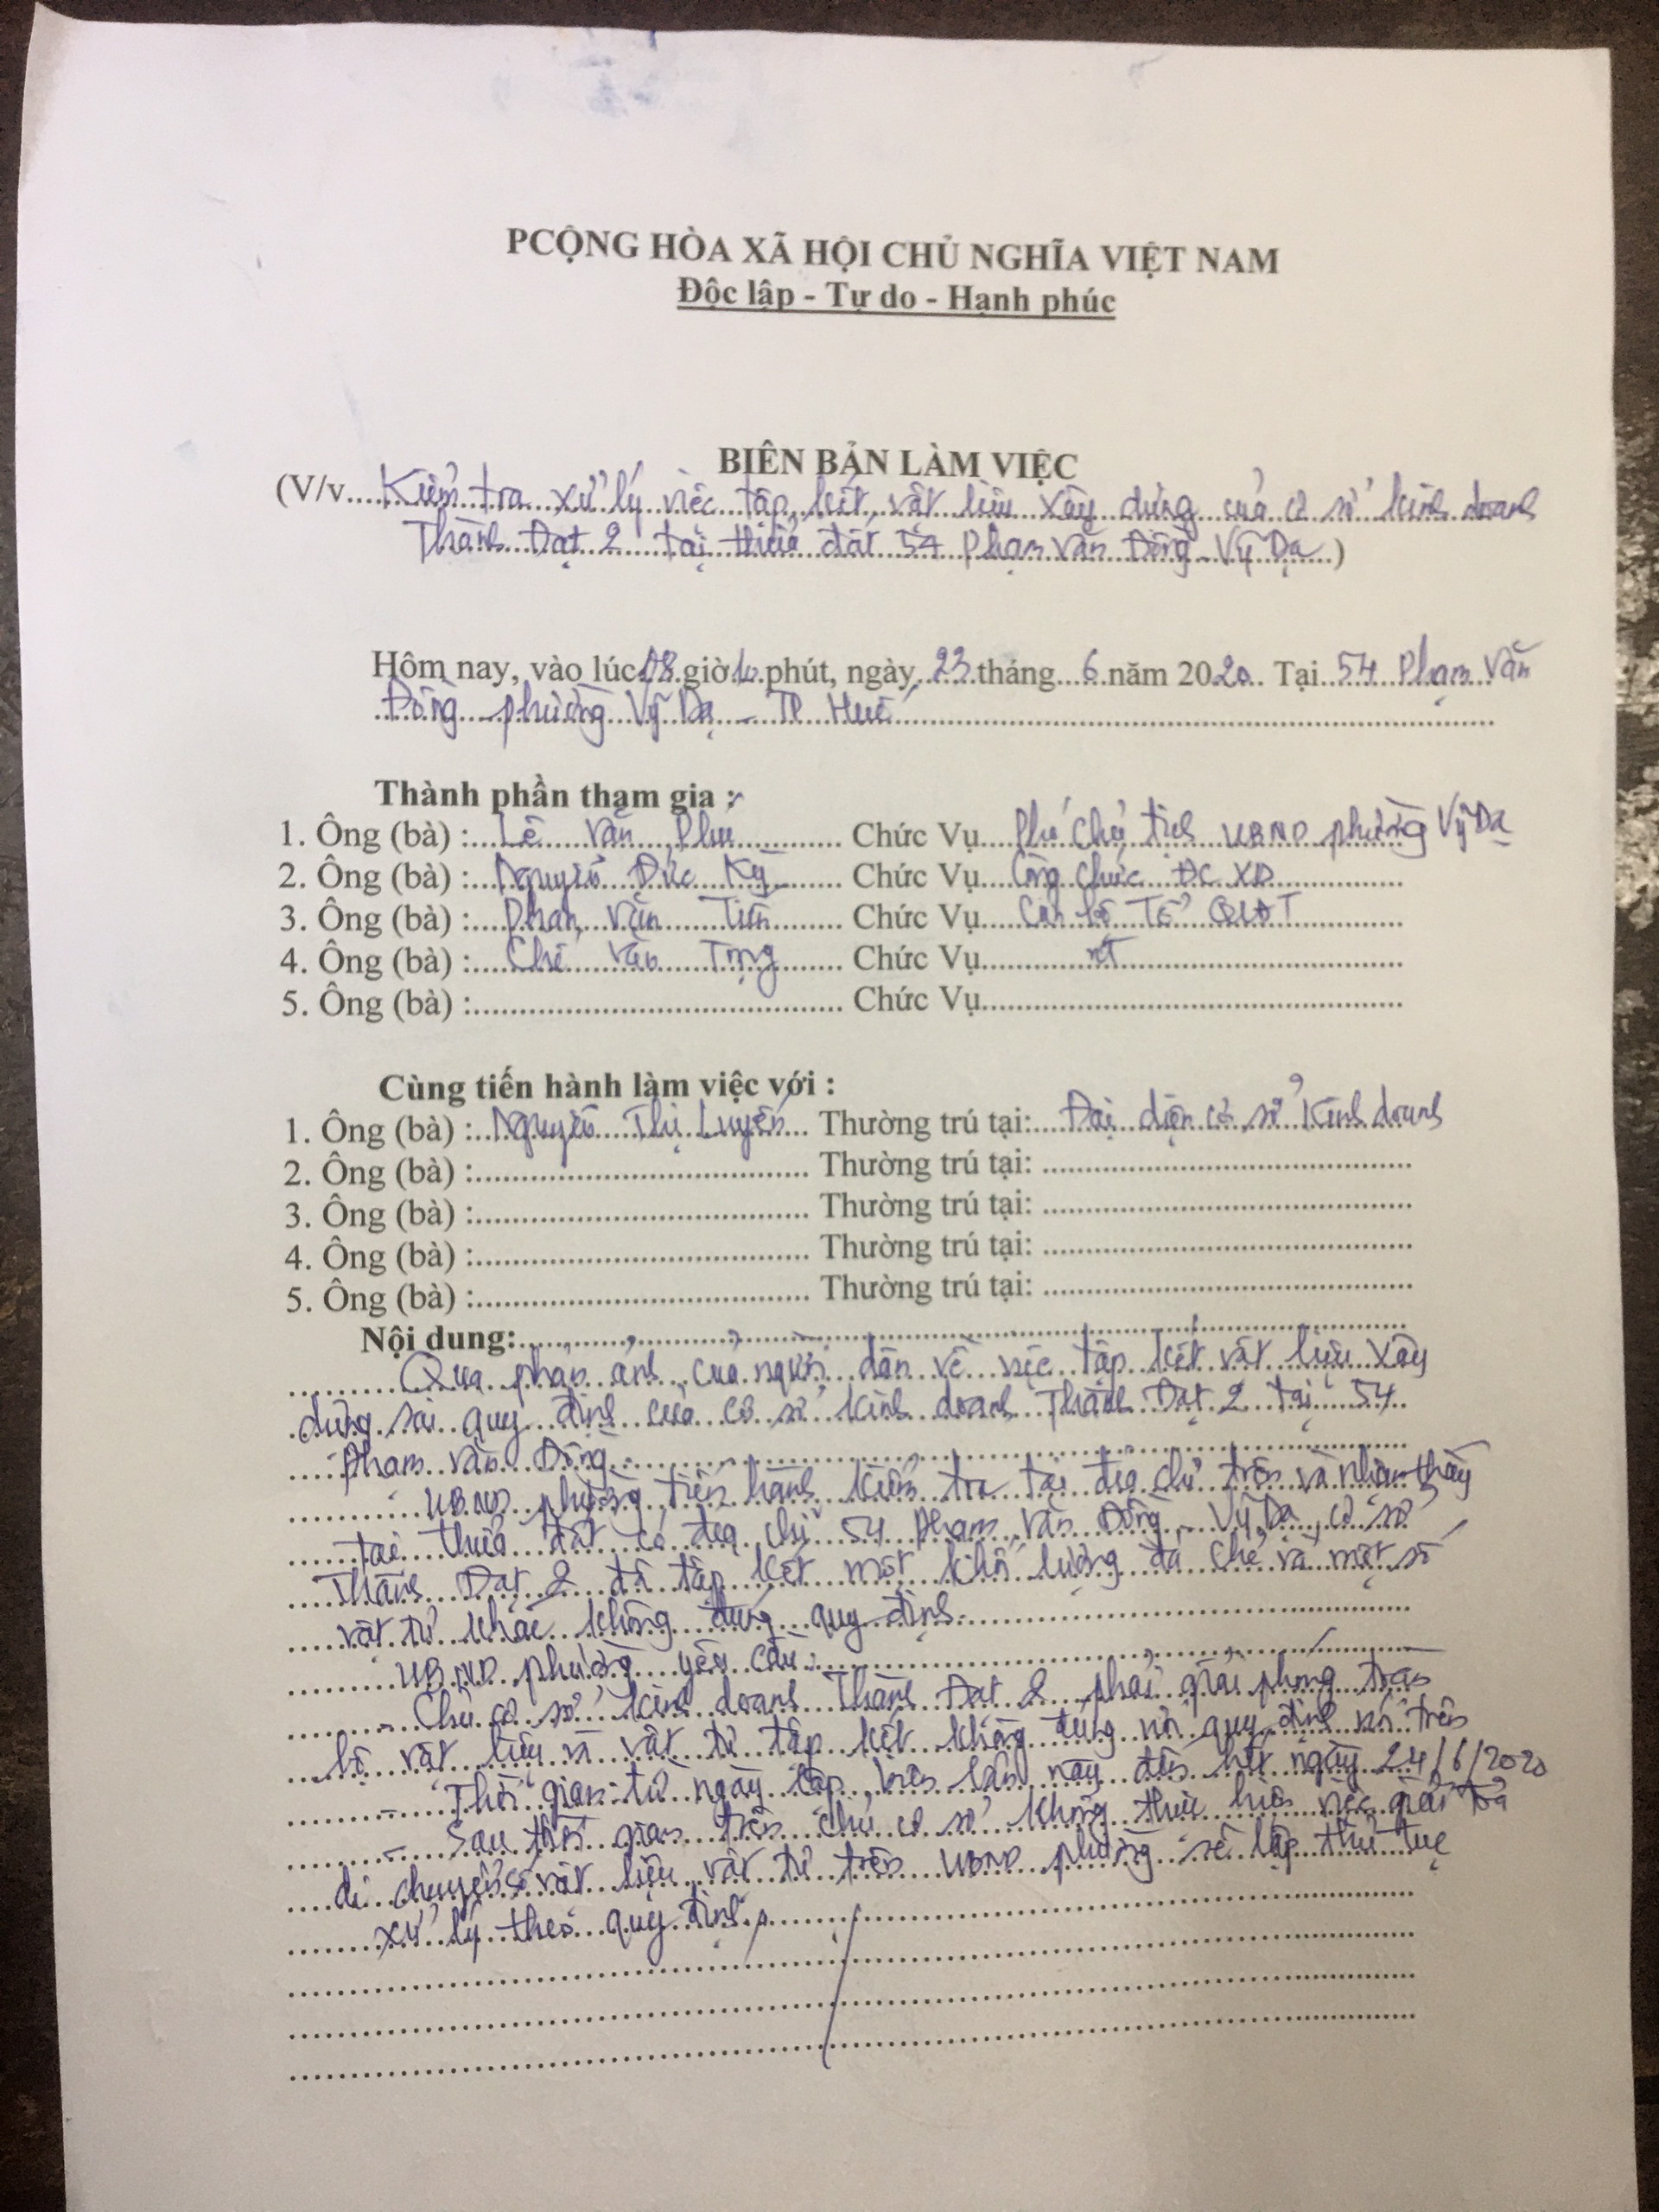 PCỘNG HÒA XÃ HỘI CHỦ NGHĨA VIỆT NAM
Độc lập - Tự do - Hạnh phúc
BIÊN BẢN LÀM VIỆC
(V/v.....Kiểm tra xử lý việc tập kết vật liệu xây dựng của cơ sở kinh doanh
Thành Đạt 2 tại thửa đất 54 Phạm Văn Đồng - Vỹ Dạ...)
Hôm nay, vào lúc 08 giờ 10 phút, ngày 23 tháng 6 năm 2020. Tại 54 Phạm Văn
Đồng phường Vỹ Dạ - TP Huế
Thành phần tham gia :
1. Ông (bà) : Lê Văn Phú Chức Vụ Phó Chủ tịch UBND phường Vỹ Dạ
2. Ông (bà) : Nguyễn Đức Kỳ Chức Vụ Công chức ĐC XD
3. Ông (bà) : Phan Văn Tiến Chức Vụ Cán bộ Tổ QLĐT
4. Ông (bà) : Chế Văn Trọng Chức Vụ nt
5. Ông (bà) :........ Chức Vụ........
Cùng tiến hành làm việc với :
1. Ông (bà) : Nguyễn Thị Luyến Thường trú tại: Đại diện cơ sở kinh doanh
2. Ông (bà) :........ Thường trú tại: ........
3. Ông (bà) :........ Thường trú tại: ........
4. Ông (bà) :........ Thường trú tại: ........
5. Ông (bà) :........ Thường trú tại: ........
Nội dung:........
Qua phản ánh của người dân về việc tập kết vật liệu xây
dựng sai quy định của cơ sở kinh doanh Thành Đạt 2 tại 54
Phạm Văn Đồng.
UBND phường tiến hành kiểm tra tại địa chỉ trên và nhận thấy
tại thửa đất có địa chỉ 54 Phạm Văn Đồng - Vỹ Dạ, cơ sở
Thành Đạt 2 đã tập kết một khối lượng đá chẻ và một số
vật tư khác không đúng quy định.
UBND phường yêu cầu:
- Chủ cơ sở kinh doanh Thành Đạt 2 phải giải phóng toàn
bộ vật liệu và vật tư tập kết không đúng nơi quy định nói trên
- Thời gian: từ ngày lập biên bản này đến hết ngày 24/6/2020
- Sau thời gian trên chủ cơ sở không thực hiện việc giải tỏa
di chuyển số vật liệu, vật tư trên UBND phường sẽ lập thủ tục
xử lý theo quy định./.